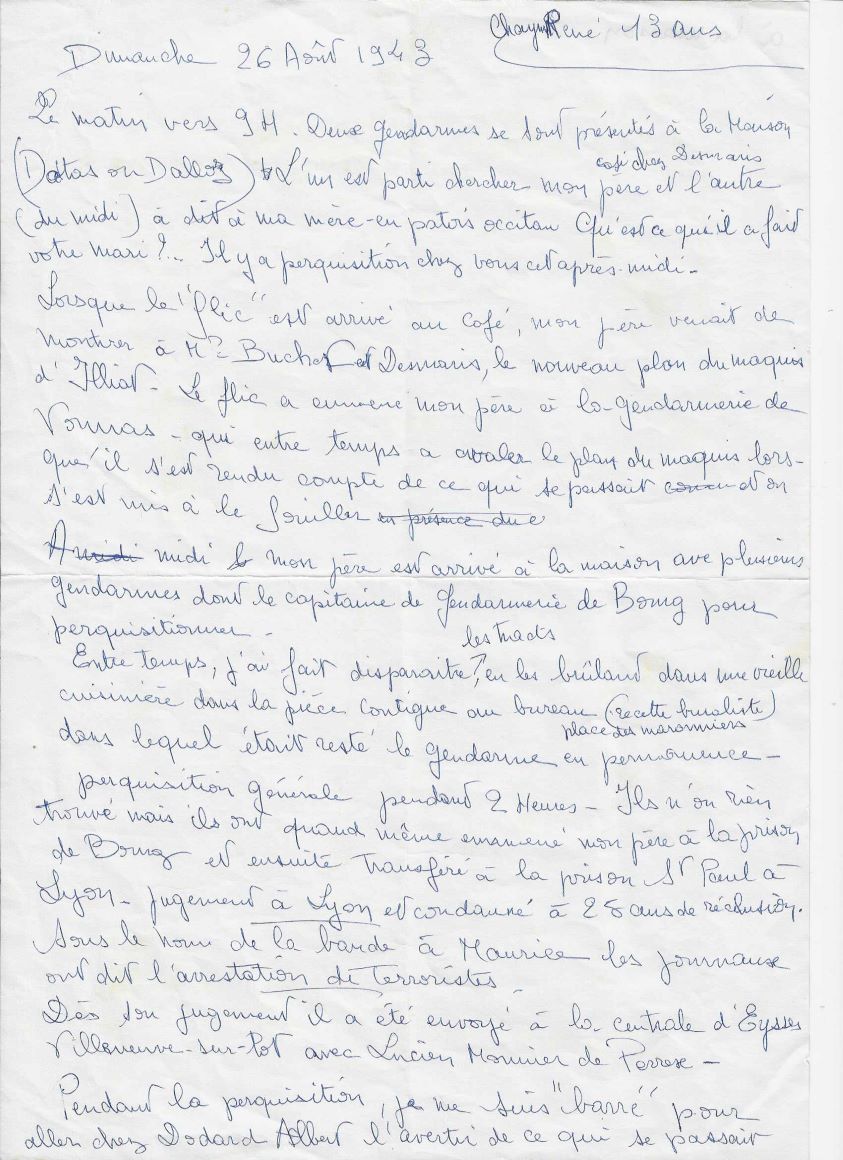 René 13 ans
Dimanche 26 Août 1943
Le matin vers 9H. Deux gendarmes se sont présentés à la Maison
café chez Desmaris
(Dattas ou Dalloz) L'un est parti chercher mon père et l'autre
(du midi) à dit à ma mère-en patois occitan Qu'est ce qu'il a fait
votre mari?.. Il y a perquisition chez vous cet après-midi-
Lorsque le "flic" est arrivé au café, mon père venait de
montrer à Mr et Desmaris, le nouveau plan du maquis
d'Illiat- Le flic a emmené mon père à la gendarmerie de
Vonnas - qui entre temps a avaler le plan du maquis lors-
qu'il s'est rendu compte de ce qui se passait et on
s'est mis à le fouiller en présence du
A midi midi mon père est arrivé à la maison ave plusieurs
gendarmes dont le capitaine de Gendarmerie de Bourg pour
perquisitionner -
les tracts
Entre temps, j'ai fait disparaitre, en les brûlant dans une vieille
cuisinière dans la pièce contigue au bureau (recette buraliste)
place des marronniers
dans lequel était resté le gendarme en permanence -
perquisition générale pendant 2 Heures - Ils n'on rien
trouvé mais ils ont quand même emmené mon père à la prison
de Bourg et ensuite transféré à la prison St Paul à
Lyon - jugement à Lyon et condanné à 25 ans de réclusion.
Sous le nom de la bande à Maurice les journaux
ont dit l'arrestation de terroristes -
Dès son jugement il a été envoyé à la centrale d'Eysses
Villeneuve-sur-Lot avec Lucien Monnier de Perrex -
Pendant la perquisition, je me suis "barré" pour
aller chez Dodard Albert l'avertir de ce qui se passait